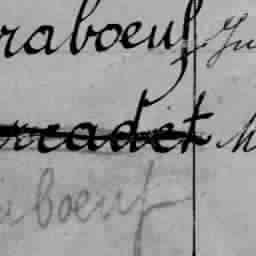 raboeuf Ju
orcadet M
uboeuf